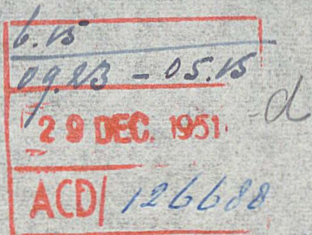 6.15
09.23 - 05.15
d
29 DEC. 1951
ACD/ 126688